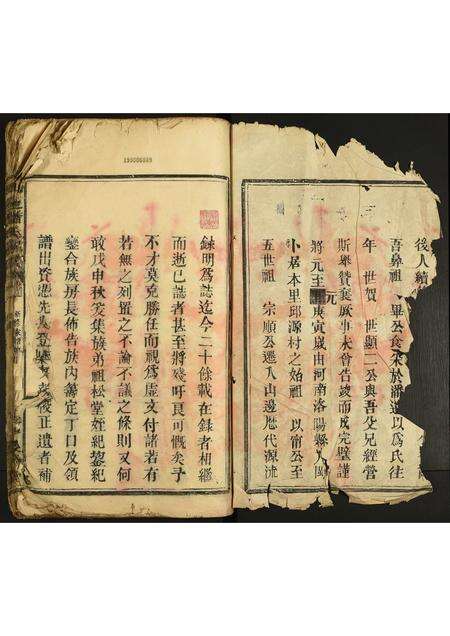 後人續
吾彝祖 畢公食采於潘遂以爲氏往
年 世賀 世顯二公與吾父兄經營
斯舉贊襄厥事未曾告竣而成完璧謹
將元至元庚寅歲由河南洛陽縣入閩
卜居本里邱源村之始祖 以甯公至
五世祖 宗順公遷入山邊歷代源流
錄明爲誌迄今二十餘載在錄者相繼
而逝已誌者甚至將殘吁良可慨矣予
不才莫克勝任而視爲虛文付諸若有
若無之列置之不論不議之條則又何
敢戊申秋爰集族弟祖松堂姪紀鋆紀
鑾合族房長佈告族內籌定丁口及領
譜出資憑先人登 俊正遺者補
199006989